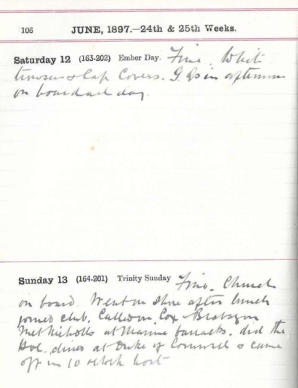 106 JUNE, 1897.—24th & 25th Weeks.
Saturday 12 (163-202) Ember Day. Fine. White
trousers & Cap Covers. G. Qs in afternoon
on board all day.
Sunday 13 (164-201) Trinity Sunday Fine. Church
on board. Went on shore after lunch
joined club. Called on Cox
Met Nicholls at Marine barracks. did the
Hoe. dined at Duke of Cornwall & came
off in 10 o'clock boat